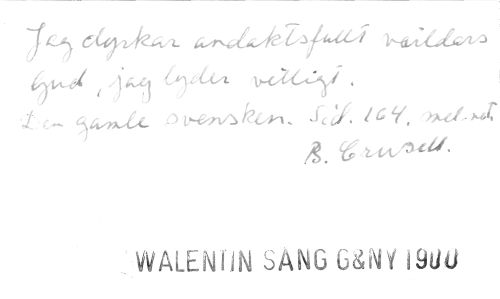 Jag dyrkar andaktsfullt världars
Gud, jag lyder villigt.
Den gamle svensken. Sid. 164. mel.
B. Crusell.
WALENTIN SÅNG G&NY 1900